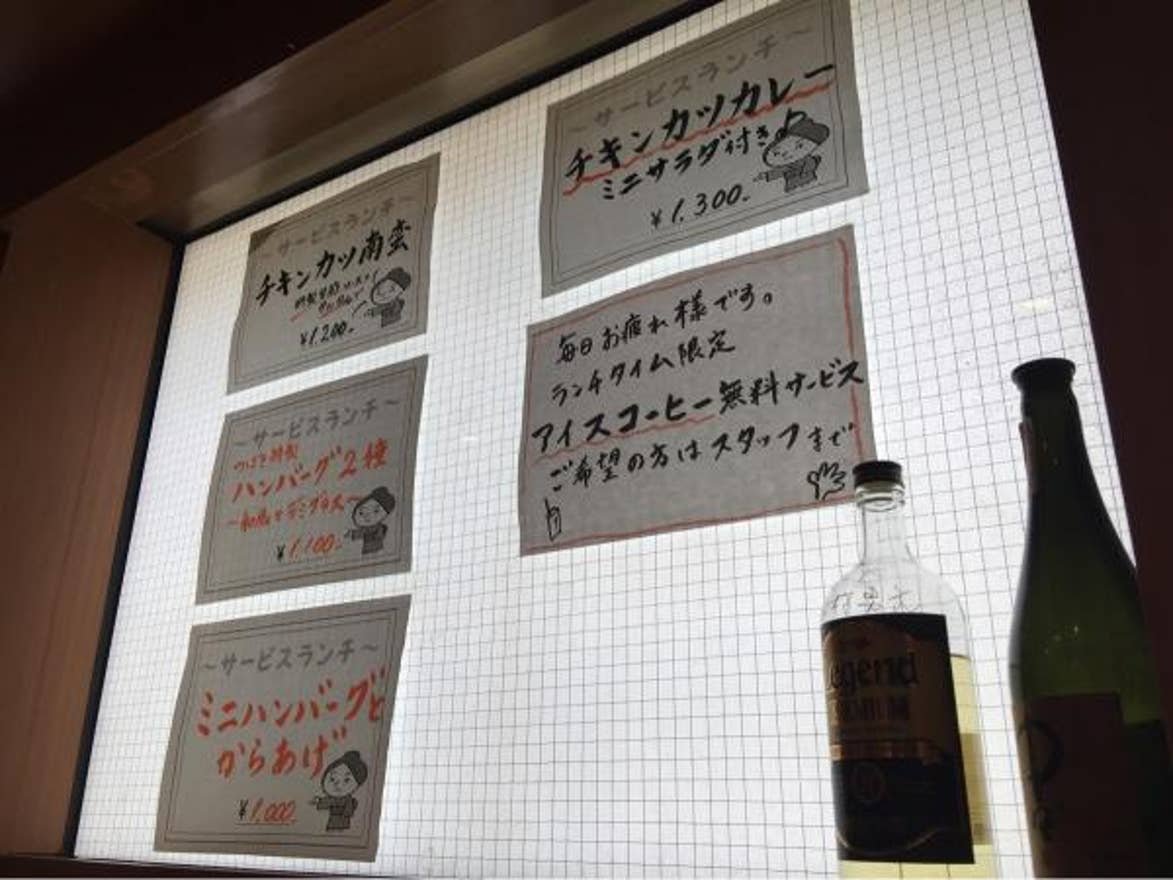 ～サービスランチ～
チキンカツ南蛮
¥1,200-
～サービスランチ～
つばき特製
ハンバーグ2種
～和風とデミグラス～
¥1,100-
～サービスランチ～
ミニハンバーグと
からあげ
¥1,000-
～サービスランチ～
チキンカツカレー
ミニサラダ付き♪
¥1,300-
毎日お疲れ様です。
ランチタイム限定
アイスコーヒー無料サービス
ご希望の方はスタッフまで
Legend
PREMIUM